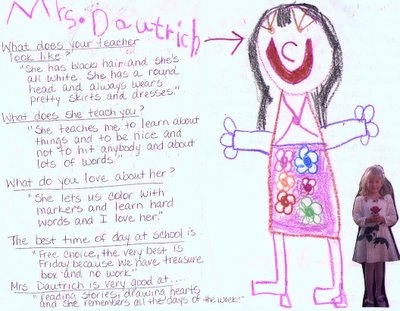 Mrs. Dautrich
What does your teacher
look like?
"She has black hair and she's
all white. She has a round
head and always wears
pretty skirts and dresses."
What does she teach you?
"She teaches me to learn about
things and to be nice and
not to hit anybody and about
lots of words."
What do you love about her?
"She lets us color with
markers and learn hard
words and I love her."
The best time of day at school is
"Free choice, the very best is
Friday because we have treasure
box and no work."
Mrs. Dautrich is very good at....
"reading stories, drawing hearts
and she remembers all the days of the week!"